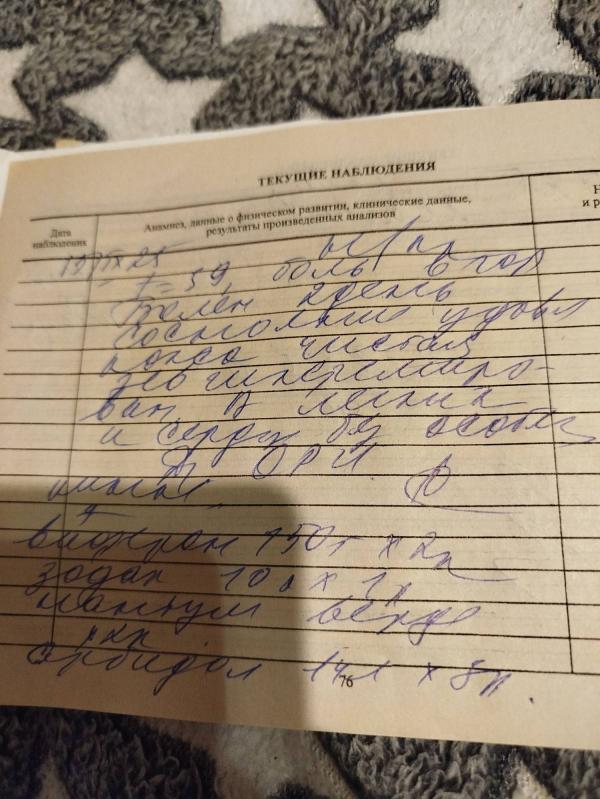 ТЕКУЩИЕ НАБЛЮДЕНИЯ
Дата наблюдения
Анамнез, данные о физическом развитии, клинические данные, результаты произведенных анализов
Н
и р
боль в гор
Болен 2 день
состояние удовл
кожа чистая
зев гиперемиро-
ван В легких
и сердце без особен
ОРИ
150 х 2р
зодак 10к х 1р
тантум верде
арбидол х
76